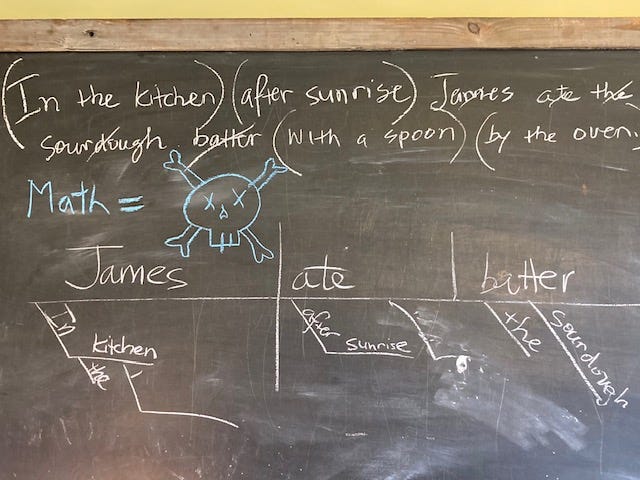 (In the kitchen) (after sunrise) James ate the
sourdough batter (with a spoon) (by the oven)
Math =
James ate batter
In the kitchen
after sunrise
the sourdough